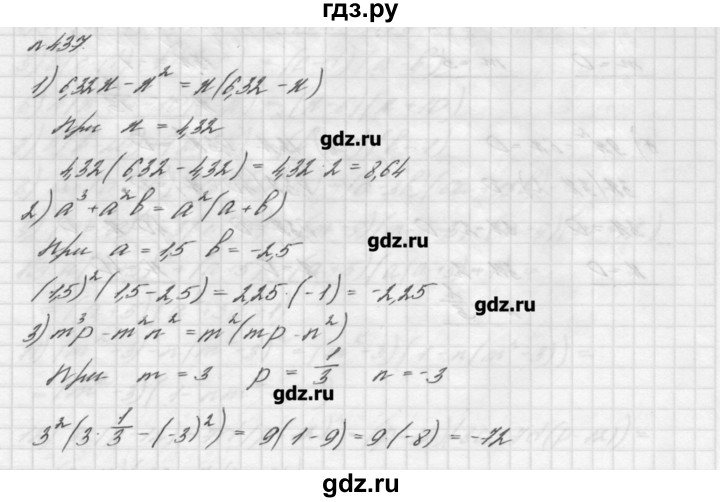 гдз.ру
№ 437.
1) 6,32x - x² = x(6,32 - x)
При x = 4,32
gdz.ru
4,32(6,32 - 4,32) = 4,32 · 2 = 8,64
2) a³ + a²b = a²(a + b)
gdz.ru
При a = 1,5 b = -2,5
(1,5)²(1,5 - 2,5) = 2,25 · (-1) = -2,25
gdz.ru
3) m³p - m²n² = m²(mp - n²)
При m = 3 p = 1/3 n = -3
gdz.ru
3²(3 · 1/3 - (-3)²) = 9(1 - 9) = 9 · (-8) = -72
gdz.ru